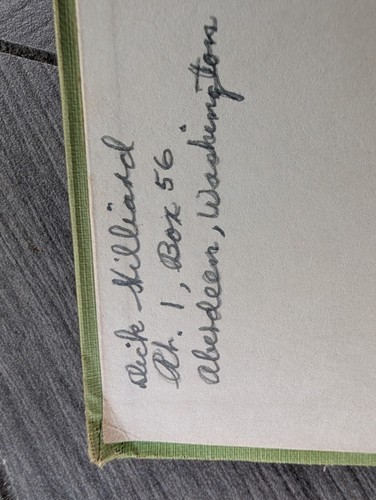 Dick Hilliard
Rt. 1, Box 56
Aberdeen, Washington